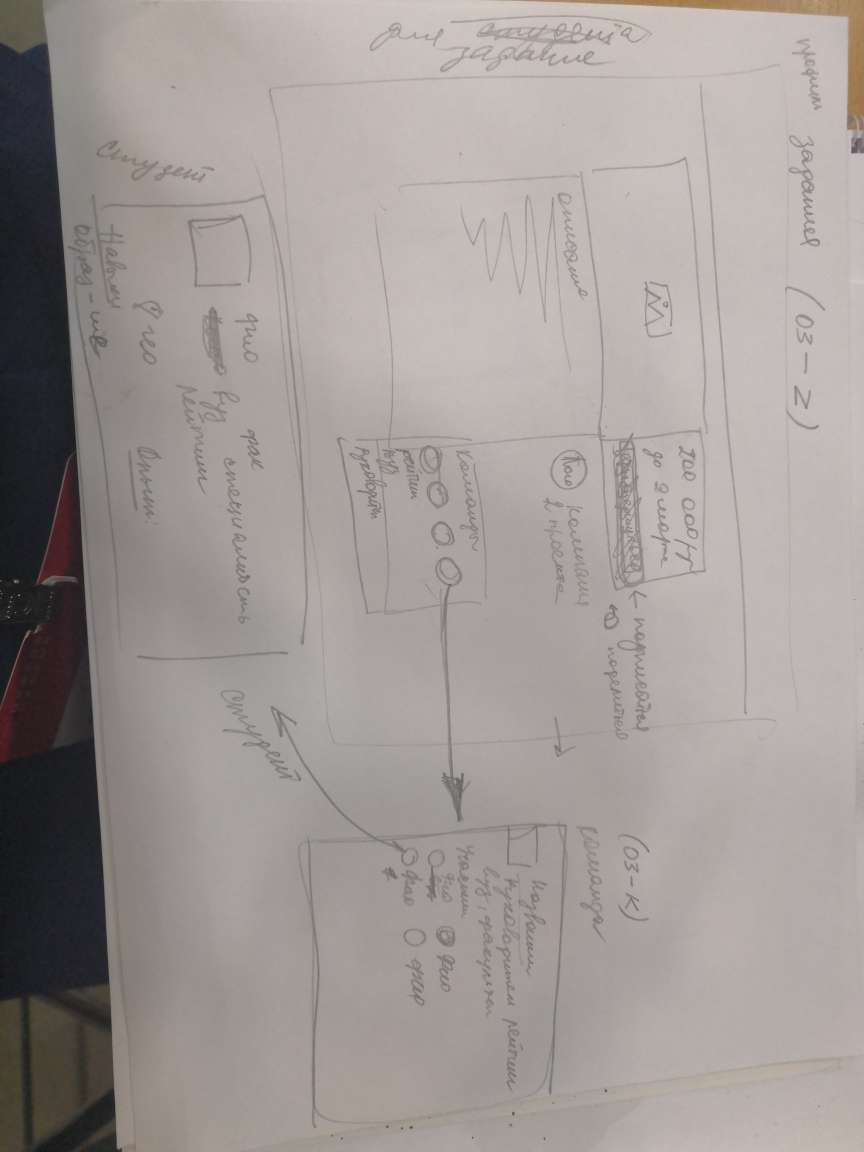 профиль задания (03-Z)
для задание
200 000 р
до 2 марта
← подписатся
поделится
описание
Лого
компания
2 проекта
команды
рейтинг
вуз
руководител
(03-К)
команда
Название
руководител рейтинг
вуз, факультет
Участники
Фио
Фио
Фио
Фио
студент
студент
Фио
фак
вуз
специалность
рейтинг
гео
Опыт:
Навыки
образ-ие